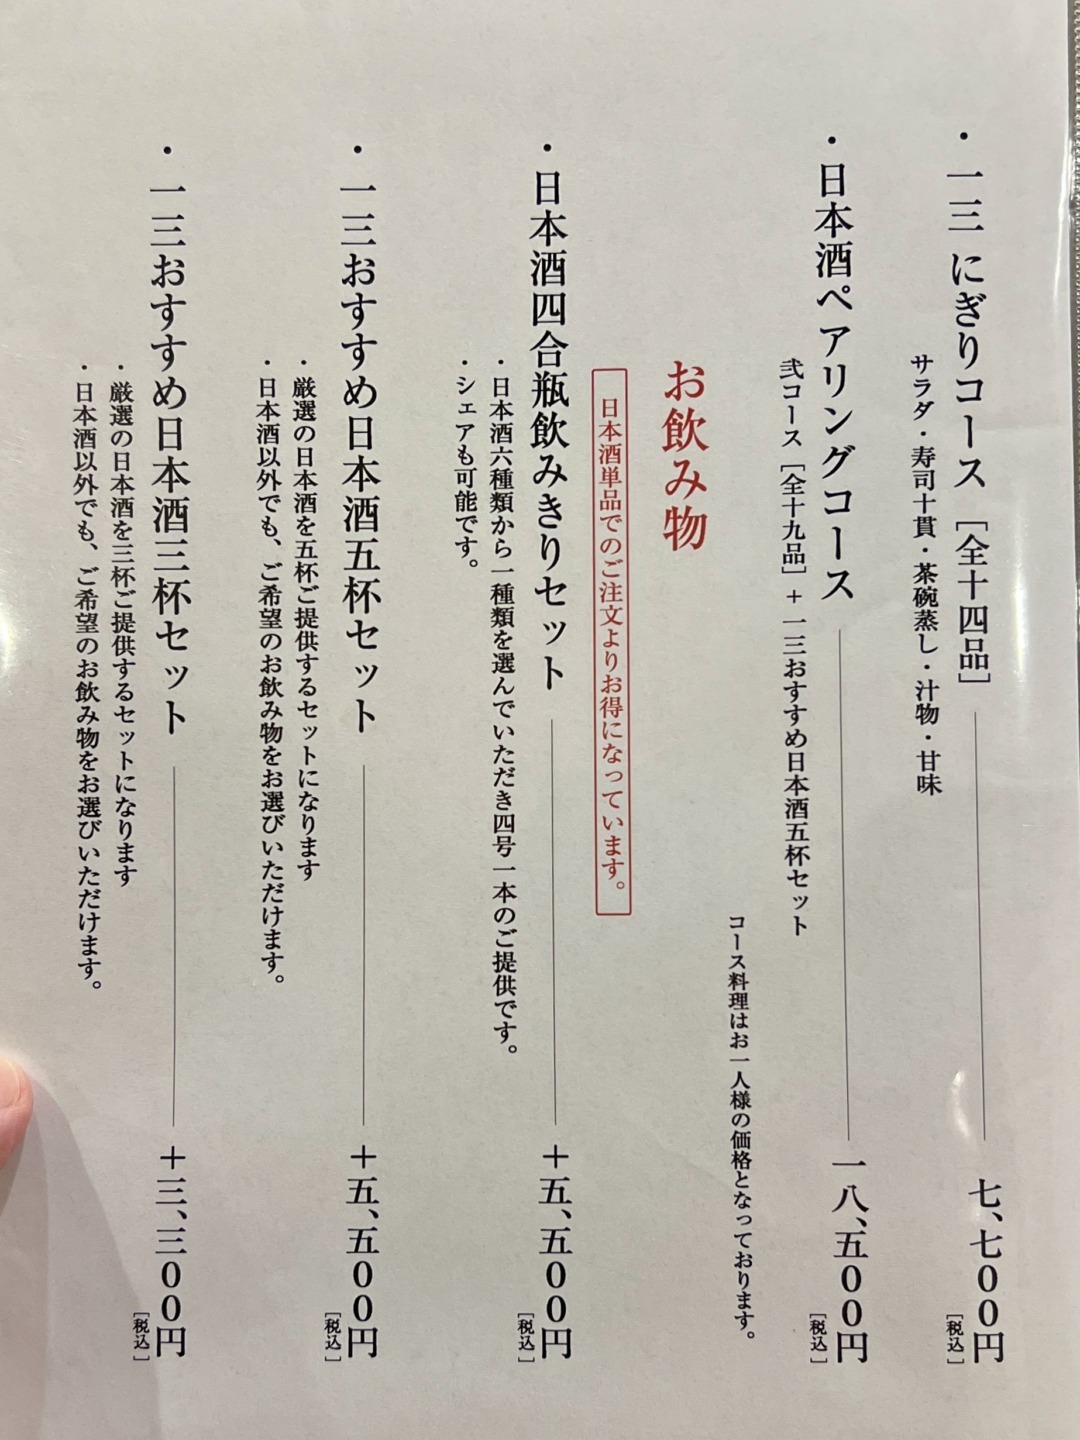 ・一三 にぎりコース [全十四品] 七、七〇〇円 [税込]
サラダ・寿司十貫・茶碗蒸し・汁物・甘味
・日本酒ペアリングコース 一八、五〇〇円 [税込]
弐コース [全十九品] + 一三おすすめ日本酒五杯セット
コース料理はお一人様の価格となっております。
お飲み物
日本酒単品でのご注文よりお得になっています。
・日本酒四合瓶飲みきりセット +五、五〇〇円 [税込]
・日本酒六種類から一種類を選んでいただき四号一本のご提供です。
・シェアも可能です。
・一三おすすめ日本酒五杯セット +五、五〇〇円 [税込]
・厳選の日本酒を五杯ご提供するセットになります
・日本酒以外でも、ご希望のお飲み物をお選びいただけます。
・一三おすすめ日本酒三杯セット +三、三〇〇円 [税込]
・厳選の日本酒を三杯ご提供するセットになります
・日本酒以外でも、ご希望のお飲み物をお選びいただけます。